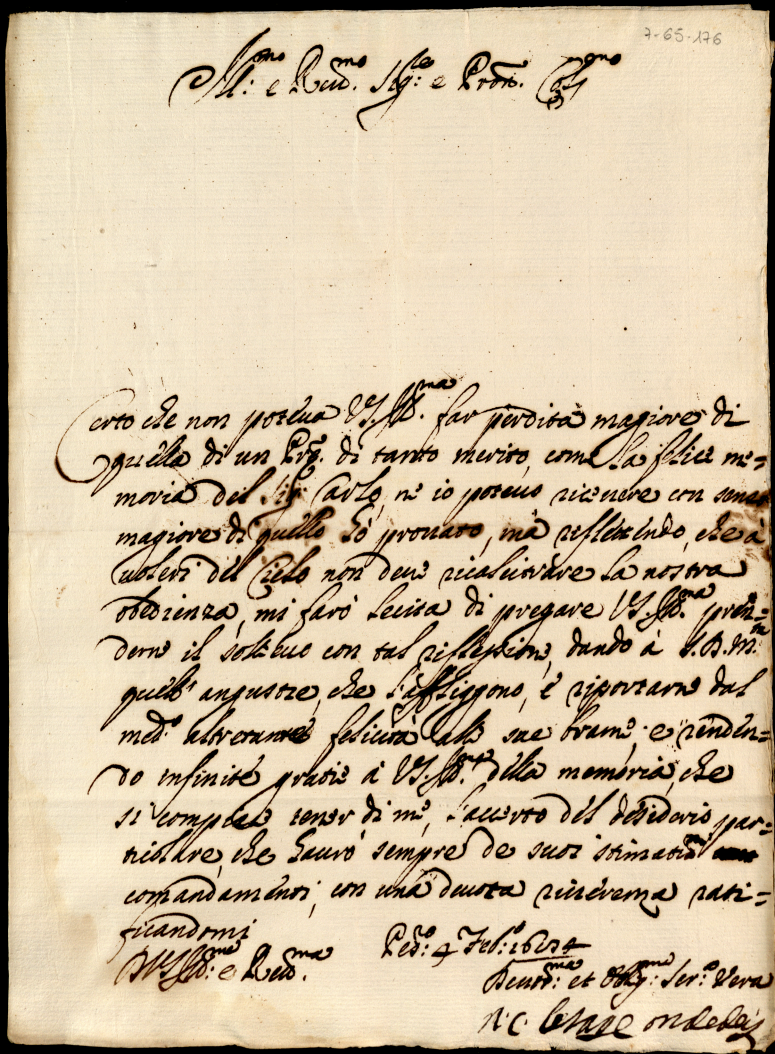 7-65-176
Ill:mo e Reud.mo Sig:re e Pron. Col.mo
Certo che non poteua VS. Ill.ma far perdita magiore di
quella di un Prõe. di tanto merito, come la felice me=
moria del Sig. Carlo, ne io poteuo riceuere con senso
magiore di quello hò prouato, mà reflettendo, che à
uoleri del Cielo non deue ricalcitrare la nostra
obedienza, mi farò lecita di pregare VS. Ill.ma pren=
derne il solieuo con tal riflessione, dando à S.D.M.
quell' angustie, che l'affliggono, e riportarne dal
med.o altretante felicità alle sue brame; e renden=
do infinite gratie à VS. Ill.ma della memoria, che
si compiace tener di me, l'accerto del desiderio par=
ticolare, che hauró sempre de suoi stimatiss.mi
comandamenti, con una deuota riuerenza rati=
ficandomi
D VS Ill.ma: e Reud.ma
4 Feb:o
Deuot.ma: et Obblig:ma Ser:a Vera